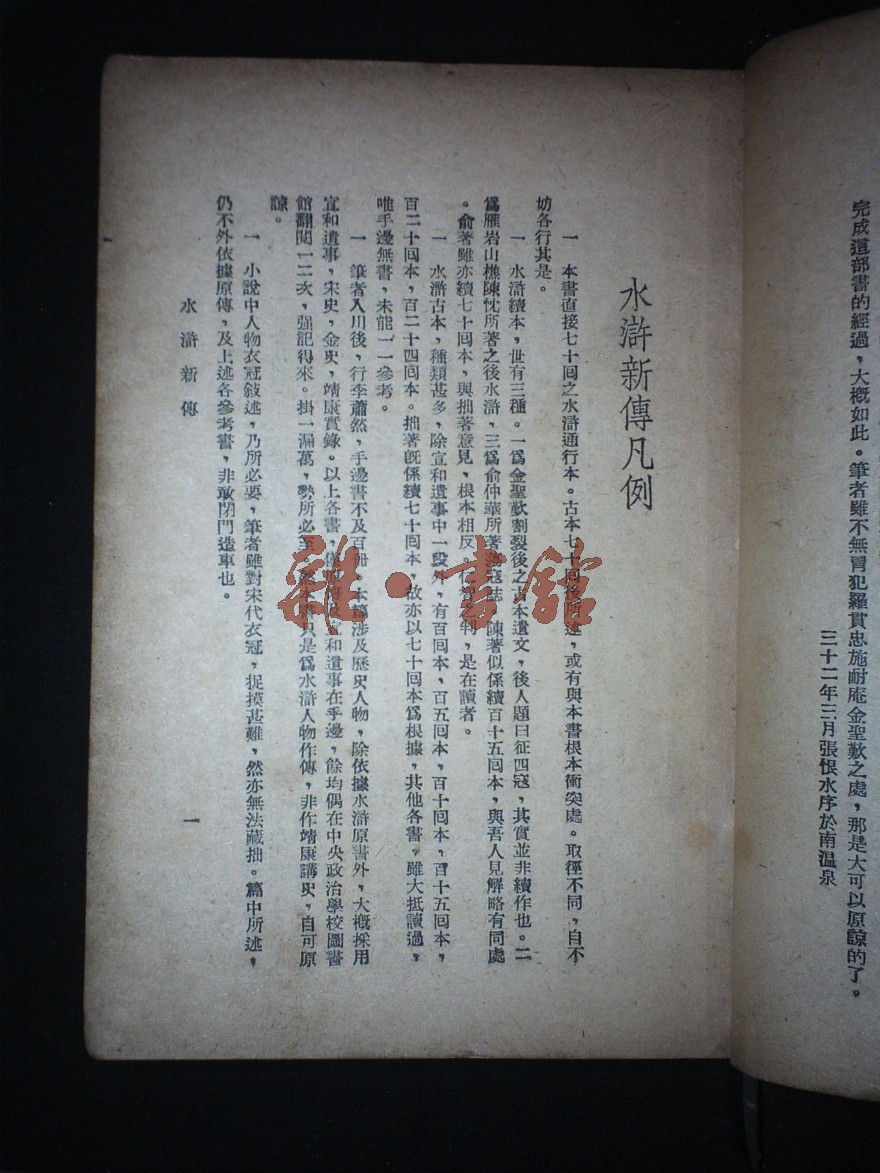 完成這部書的經過，大概如此。筆者雖不無冒犯羅貫忠施耐庵金聖歎之處，那是大可以原諒的了。
三十二年三月張恨水序於南温泉
水滸新傳凡例
一　本書直接七十回之水滸通行本。古本七十回後所述，或有與本書根本衝突處。取徑不同，自不
妨各行其是。
一　水滸續本，世有三種。一爲金聖歎割裂後之古本遺文，後人題曰征四寇，其實並非續作也。二
爲雁宕山樵陳忱所著之後水滸，三爲俞仲華所著蕩寇誌。陳著似係續百十五回本，與吾人見解略有同處
。俞著雖亦續七十回本，與拙著意見，根本相反。仁智之判，是在讀者。
一　水滸古本，種類甚多，除宣和遺事中一段外，有百回本，百五回本，百十回本，百十五回本，
百二十回本，百二十四回本。拙著旣係續七十回本，故亦以七十回本爲根據，其他各書，雖大抵讀過，
唯手邊無書，未能一一參考。
一　筆者入川後，行李蕭然，手邊書不及百冊，本篇涉及歷史人物，除依據水滸原書外，大概採用
宣和遺事，宋史，金史，靖康實錄。以上各書，僅宣和遺事在手邊，餘均偶在中央政治學校圖書
館翻閱一二次，强記得來。掛一漏萬，勢所必至，本書只是爲水滸人物作傳，非作靖康講史，自可原
諒。
一　小說中人物衣冠敍述，乃所必要，筆者雖對宋代衣冠，捉摸甚難，然亦無法藏拙。篇中所述，
仍不外依據原傳，及上述各參考書，非敢閉門造車也。
水滸新傳
一
雜·書館